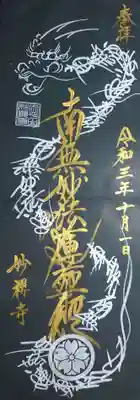 奉拝
令和三年十月一日
南無妙法蓮華経
妙禅寺